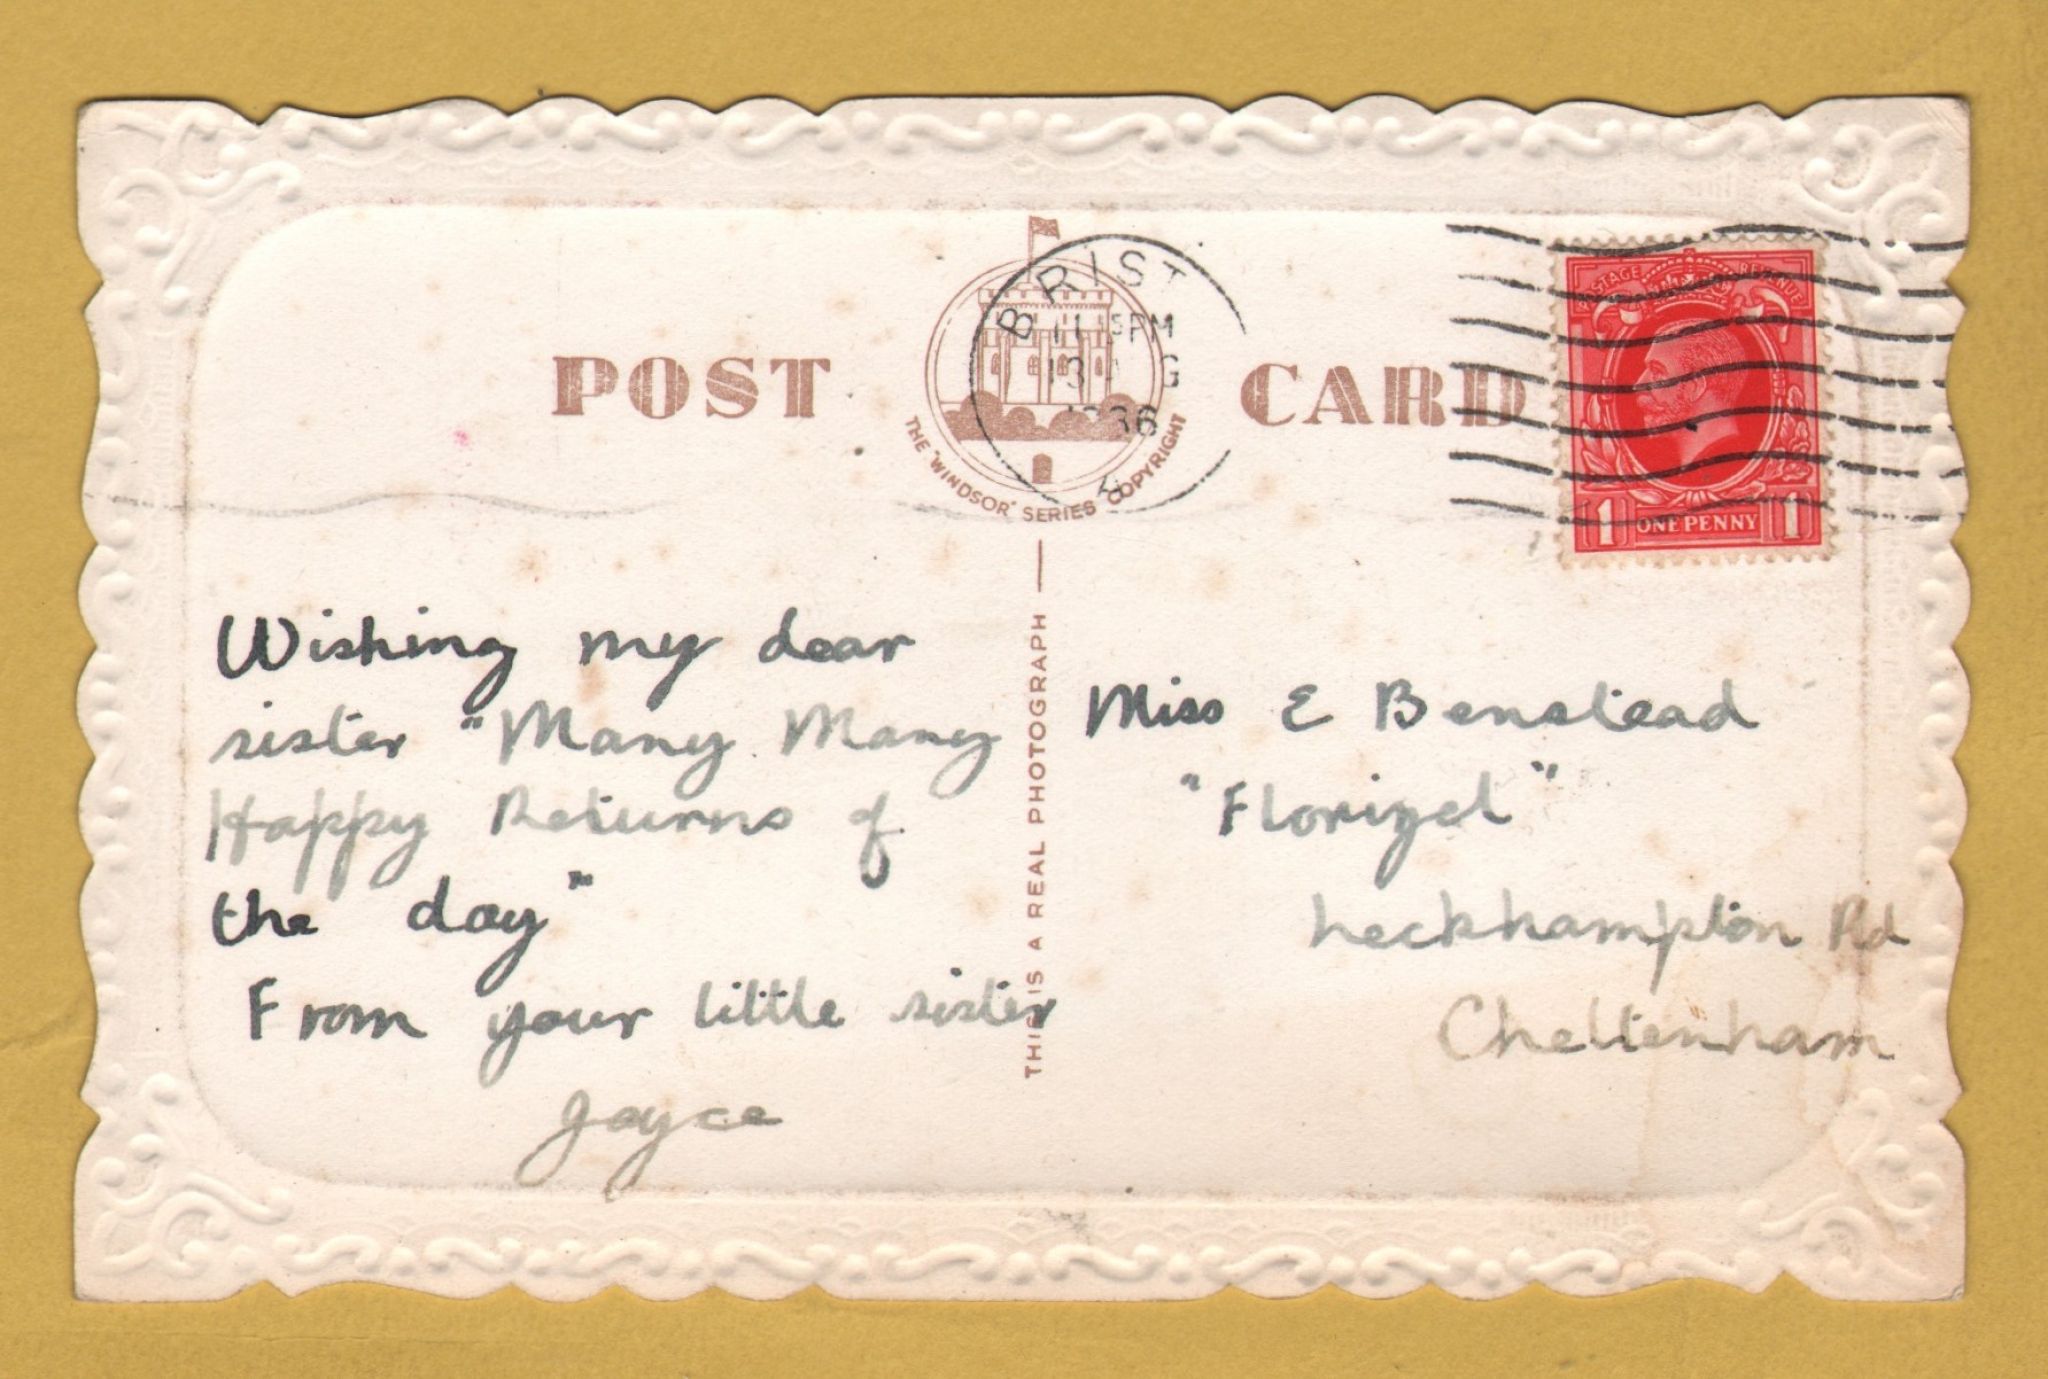 POST CARD
THE "WINDSOR" SERIES COPYRIGHT
BRIST
PM
13
POSTAGE REVENUE
1 ONE PENNY 1
THIS IS A REAL PHOTOGRAPH
Wishing my dear
sister "Many Many
Happy Returns of
the day"
From your little sister
Joyce
Miss E Benstead
"Florizel"
Leckhampton Rd
Cheltenham